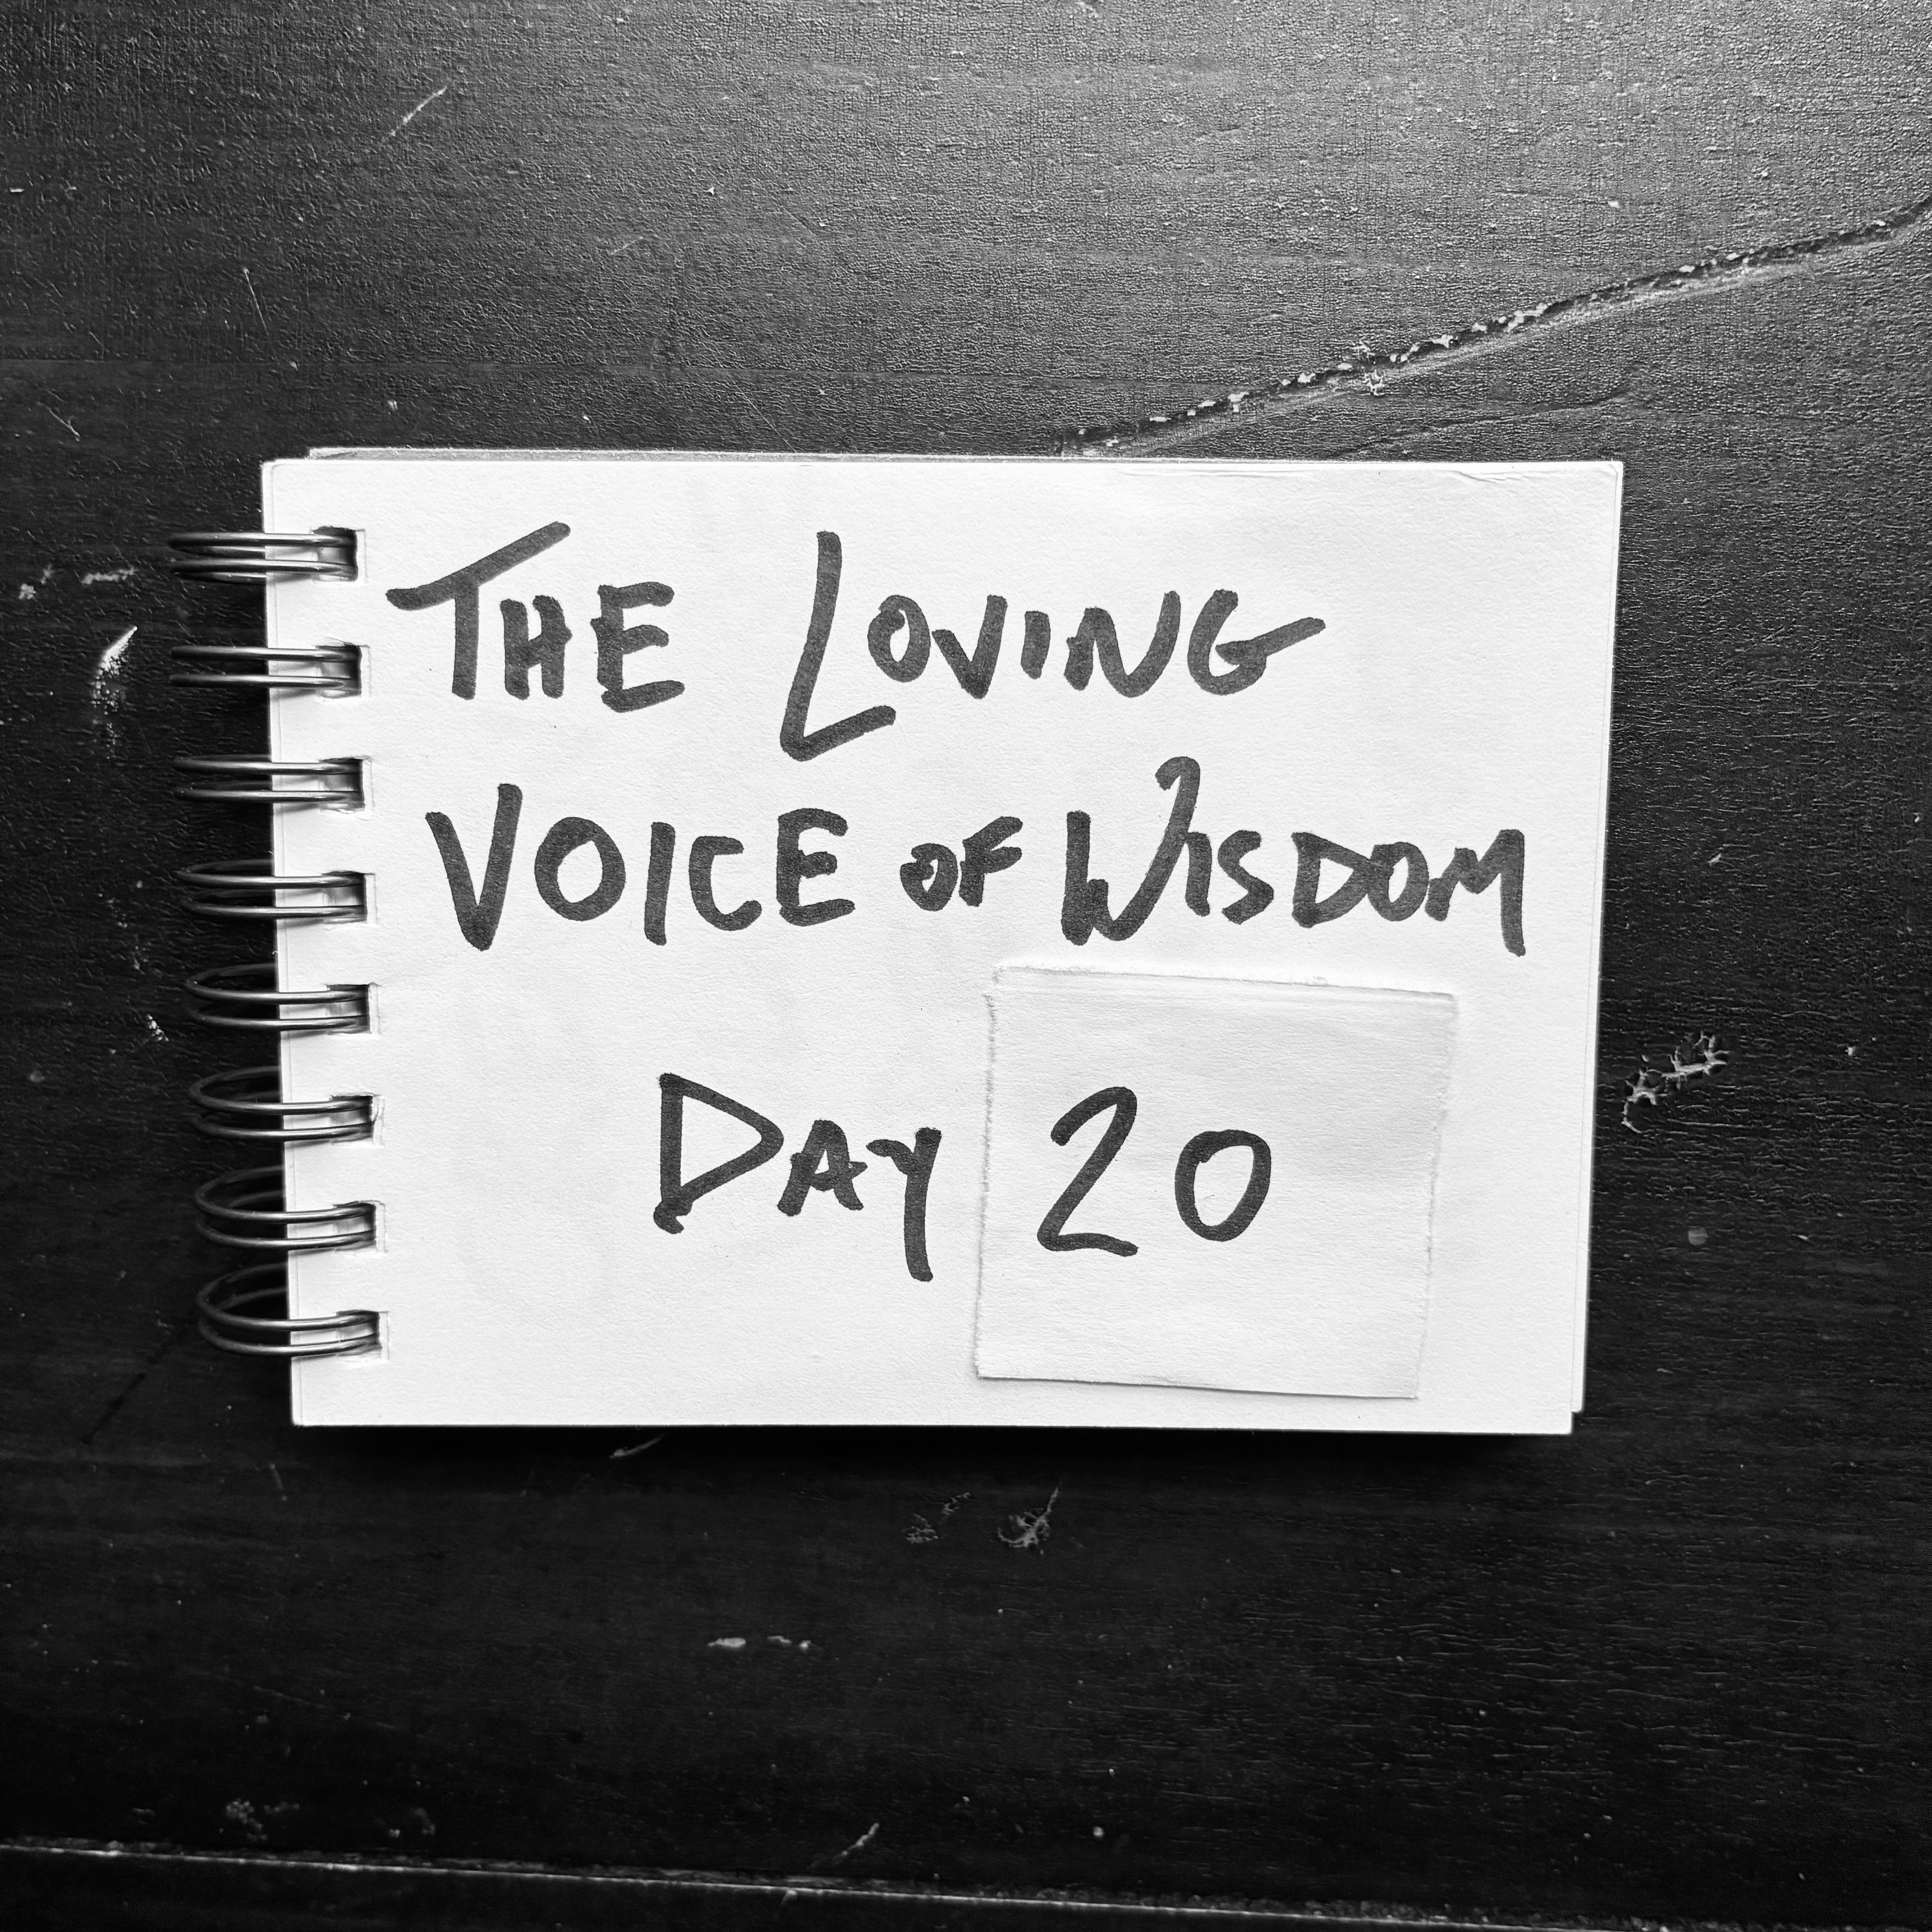 THE LOVING
VOICE OF WISDOM
DAY 20